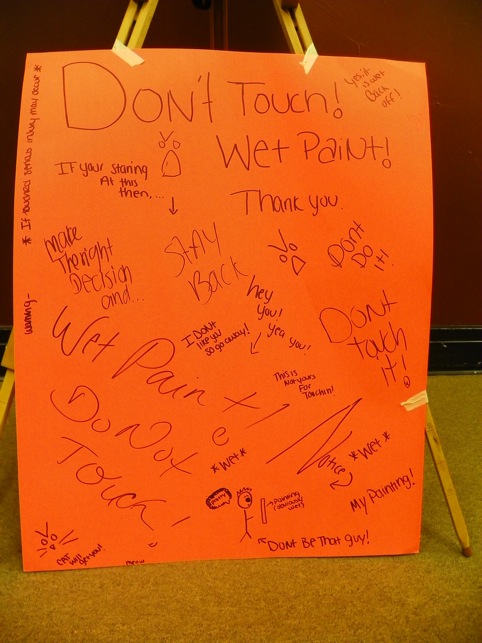 DON'T TOUCH!
WET PAINT!
Thank you.
Yes it
is wet
Back
off!
* If touched serious injury may occur *
warning-
IF your staring
At this
then,...
Make
The right
Decision
and...
STAY
Back
DonT
Do
iT!
hey
you!
yea you!
I DonT
like you
so go away!
DonT
touch
iT!
Wet Paint
Do Not
Touch!
This is
Not yours
For
Touchin!
*Wet*
Notice
*Wet*
My Painting!
Painting
(obviously
wet)
DonT Be That guy!
CAT
will
get you!
meow